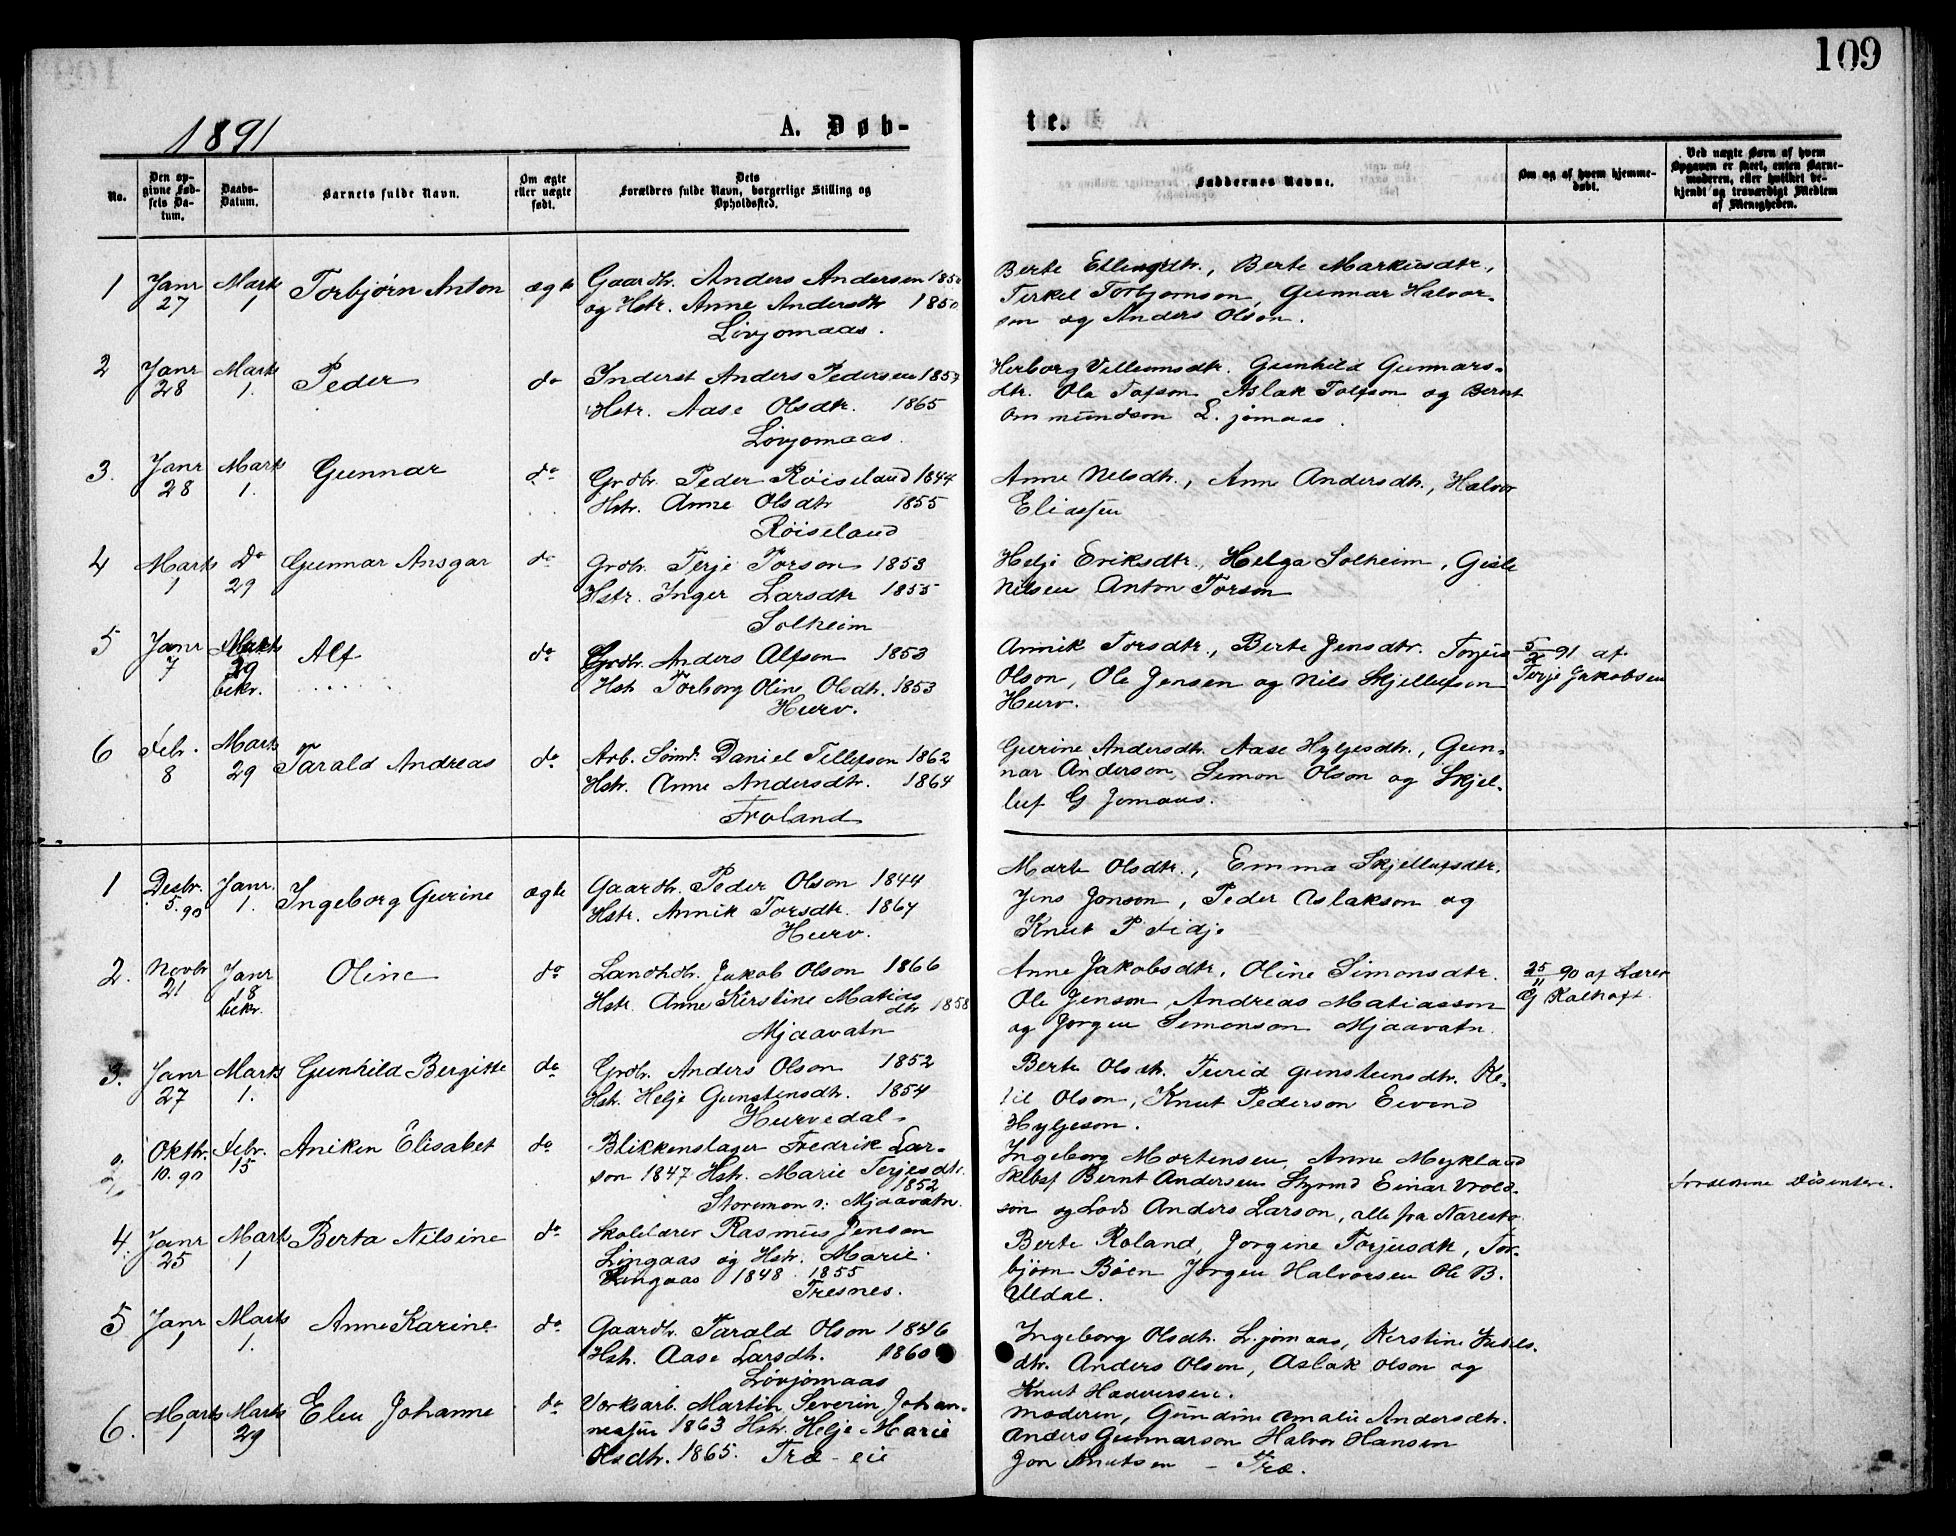 109
1891
A. Døb-
te.
No.
Den op-
givne Fød-
sels Da-
tum.
Daabs-
Datum.
Barnets fulde Navn.
Om ægte
eller uægte
født.
Dets
Forældres fulde Navn, borgerlige Stilling og
Opholdssted.
Faddernes Navne.
Om og af hvem hjemme-
døbt.
Ved uægte Børn af hvem
Opgaven er skeet, enten Barne-
moderen, eller hvilket be-
kjendt og troværdigt Medlem
af Menigheden.
1 Janr 27 Marts 1 Torbjørn Anton ægte
Gaardbr. Anders Andersen
og Hstr. Anne Andersdtr 1850
Løvjomaas.
Berte Ellingsdtr., Berte Markusdtr.,
Terkel Torbjørnson, Gunnar Halvor-
son og Anders Olson.
2 Janr 28 Marts 1. Peder do
Inderst Anders Pedersen 1857
Hstr. Aase Olsdtr. 1865
Løvjomaas.
Herborg Villumsdtr. Gunhild Gunnars-
dtr. Ole Aslak og Bernt
Ommundson L. jomaas.
3. Janr 28 Marts 1. Gunnar do
Grdbr. Peder Røiseland 1844
Hstr. Anne Olsdtr 1855
Røiseland
Anne Nelsdtr., Anne Andersdtr., Halvor
Eliassen
4 Marts 1 Do 29 Gunnar Ansgar do
Grdbr. Terje Torson 1853
Hstr. Inger Larsdtr 1855
Solheim
Helje Eriksdtr., Helga Solheim, Gisle
Nilsen Anton Torson
5 Janr 7 Marts 29 bekr. Alf do
Grdbr. Anders Alfson 1853
Hstr Torborg Oline Olsdtr. 1853
Hurv.
Annik Torsdtr., Berte Jensdtr. Torjus
Olson, Ole Jensen og Nils Skjellufson
Hurv.
5/2 91 af
Terje Jakobsen
6 Febr. 8 Marts 29 Tarald Andreas do
Arb. Sømd. Daniel Tellefson 1862
Hstr. Anne Andersdtr. 1864
Froland
Gurine Andersdtr. Aase Hylgesdtr., Gun-
nar Anderson, Simon Olson og Skjel-
luf G Jomaas.
1 Desbr. 5. 90 Janr. 1. Ingeborg Gurine ægte
Gaardbr. Peder Olson 1844
Hstr. Annik Torsdtr. 1867
Hurv.
Marte Olsdtr., Emma Skjellufsdtr.
Jens Jonson, Peder Aslakson og
Knut P Fidje
2. Novbr 21 Janr 18 bekr. Oline do
Landhdr. Jakob Olson 1866
Hstr. Anne Kirstine Matias
dtr 1858
Mjaavatn
Anne Jakobsdtr., Oline Simonsdtr.
Ole Jenson, Andreas Matiasson
og Jørgen Simonson Mjaavatn.
25/11 90 af Lærer
Kalhoft.
3. Janr 27 Marts 1. Gunhild Bergitte do
Grdbr. Anders Olson 1852
Hstr. Helje Gunstensdtr. 1854
Hurvedal
Berte Olsdtr. Turid Gunstensdtr. Ke-
til Olson, Knut Pederson Eivend
Hylgeson.
Oktbr. 10. 90 Febr. 15 Aniken Elisabet do
Blikkenslager Fredrik Lar-
son 1847 Hstr. Marie Terjesdtr.
1852
Storemon i Mjaavatn.
Ingeborg Mortensen, Anne Mykland
Bernt Andersen Styrmd Einar Vrold-
son og Lods Anders Larson, alle fra Naresto
Forældrene Disentere.
4. Janr 25 Marts 1 Berta Nilsine do
Skolelærer Rasmus Jenson
Lingaas og Hstr. Marie
Lingaas 1848 1855
Tresnes.
Berte Roland, Jørgine Torjusdtr, Tor-
bjørn Bøen Jørgen Halvorsen Ole B.
Uldal.
5 Janr 1 Marts 1. Anne Karine do
Gaardbr. Tarald Olson 1846
Hstr. Aase Larsdtr. 1860
Løvjomaas
Ingeborg Olsdtr. L. jomaas, Kerstine
dtr. Anders Olsen, Aslak Olson og
Knut Haavorsen.
6. Marts 1 Marts 29 Elen Johanne do
Verksarb. Martin Severin Johan-
nessen 1863 Hstr. Helje Marie
Olsdtr. 1865. Træ-eie
Moderen, Gundine Amalie Andersdtr.
Anders Gunnarson Halvor Hansen
Jon Knutsen – Træ.